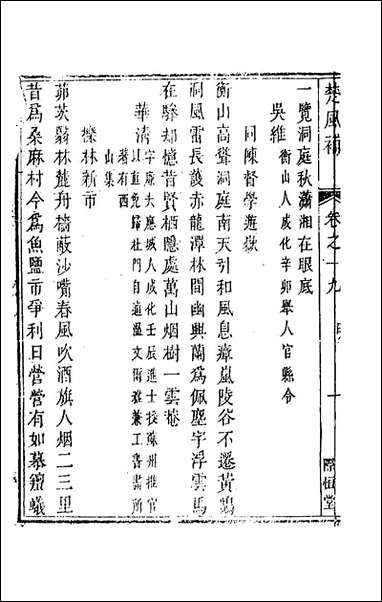 楚風補
卷之十九
明
一
際恒堂
一覽洞庭秋瀟湘在眼底
吳維
衡山人成化辛卯舉人官縣令
同陳督學遊嶽
衡山高聳洞庭南天引和風息瘴嵐陵谷不遷黃鵠
洞風雷長護赤龍潭林間幽興蘭爲佩塵宇浮雲馬
在驂却憶昔賢栖隱處萬山烟樹一雲菴
華淸
字廉夫應城人成化壬辰進士授滁州推官
以直免歸杜門自適溫文爾雅兼工書畫所
著有西
山集
櫟林新市
茆茨翳林麓舟檣蔽沙嘴春風吹酒旗人烟二三里
昔爲桑麻村今爲魚鹽市爭利日營營有如慕羶蟻